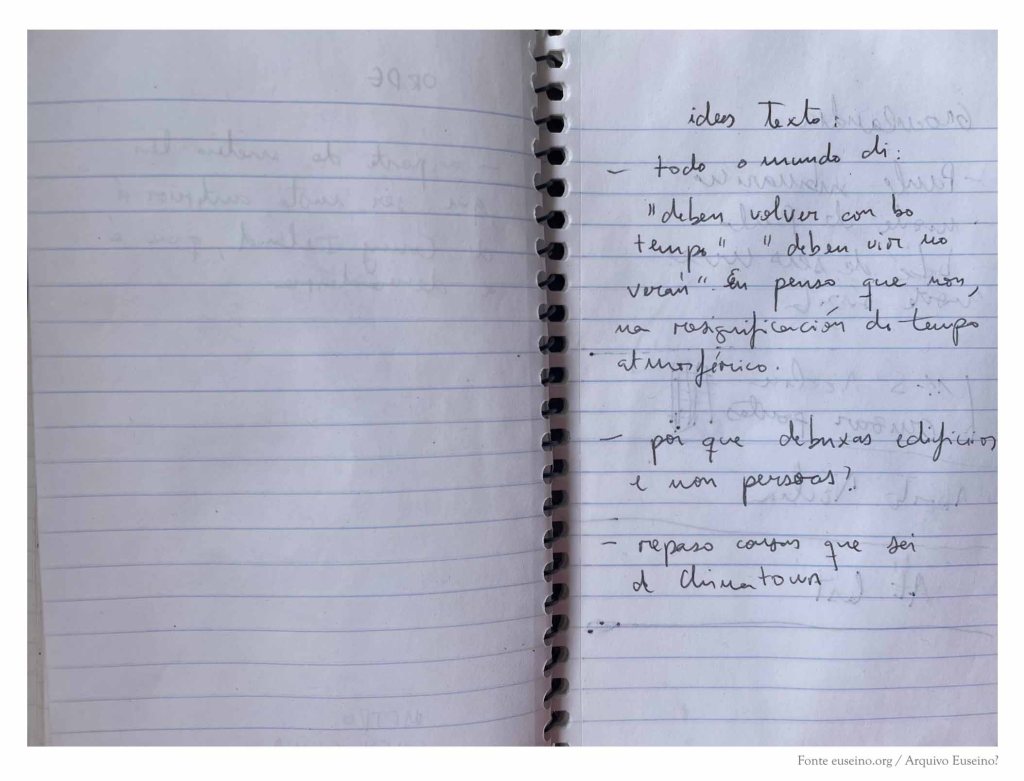 ideas texto:
- todo o mundo di:
"deben volver con bo
tempo" "deben vir no
verán" Eu penso que non,
na resignificación do tempo
atmosférico.
- por que debuxas edificios
e non persoas?
- repaso cousas que sei
de Chinatown
Fonte euseino.org / Arquivo Euseino?